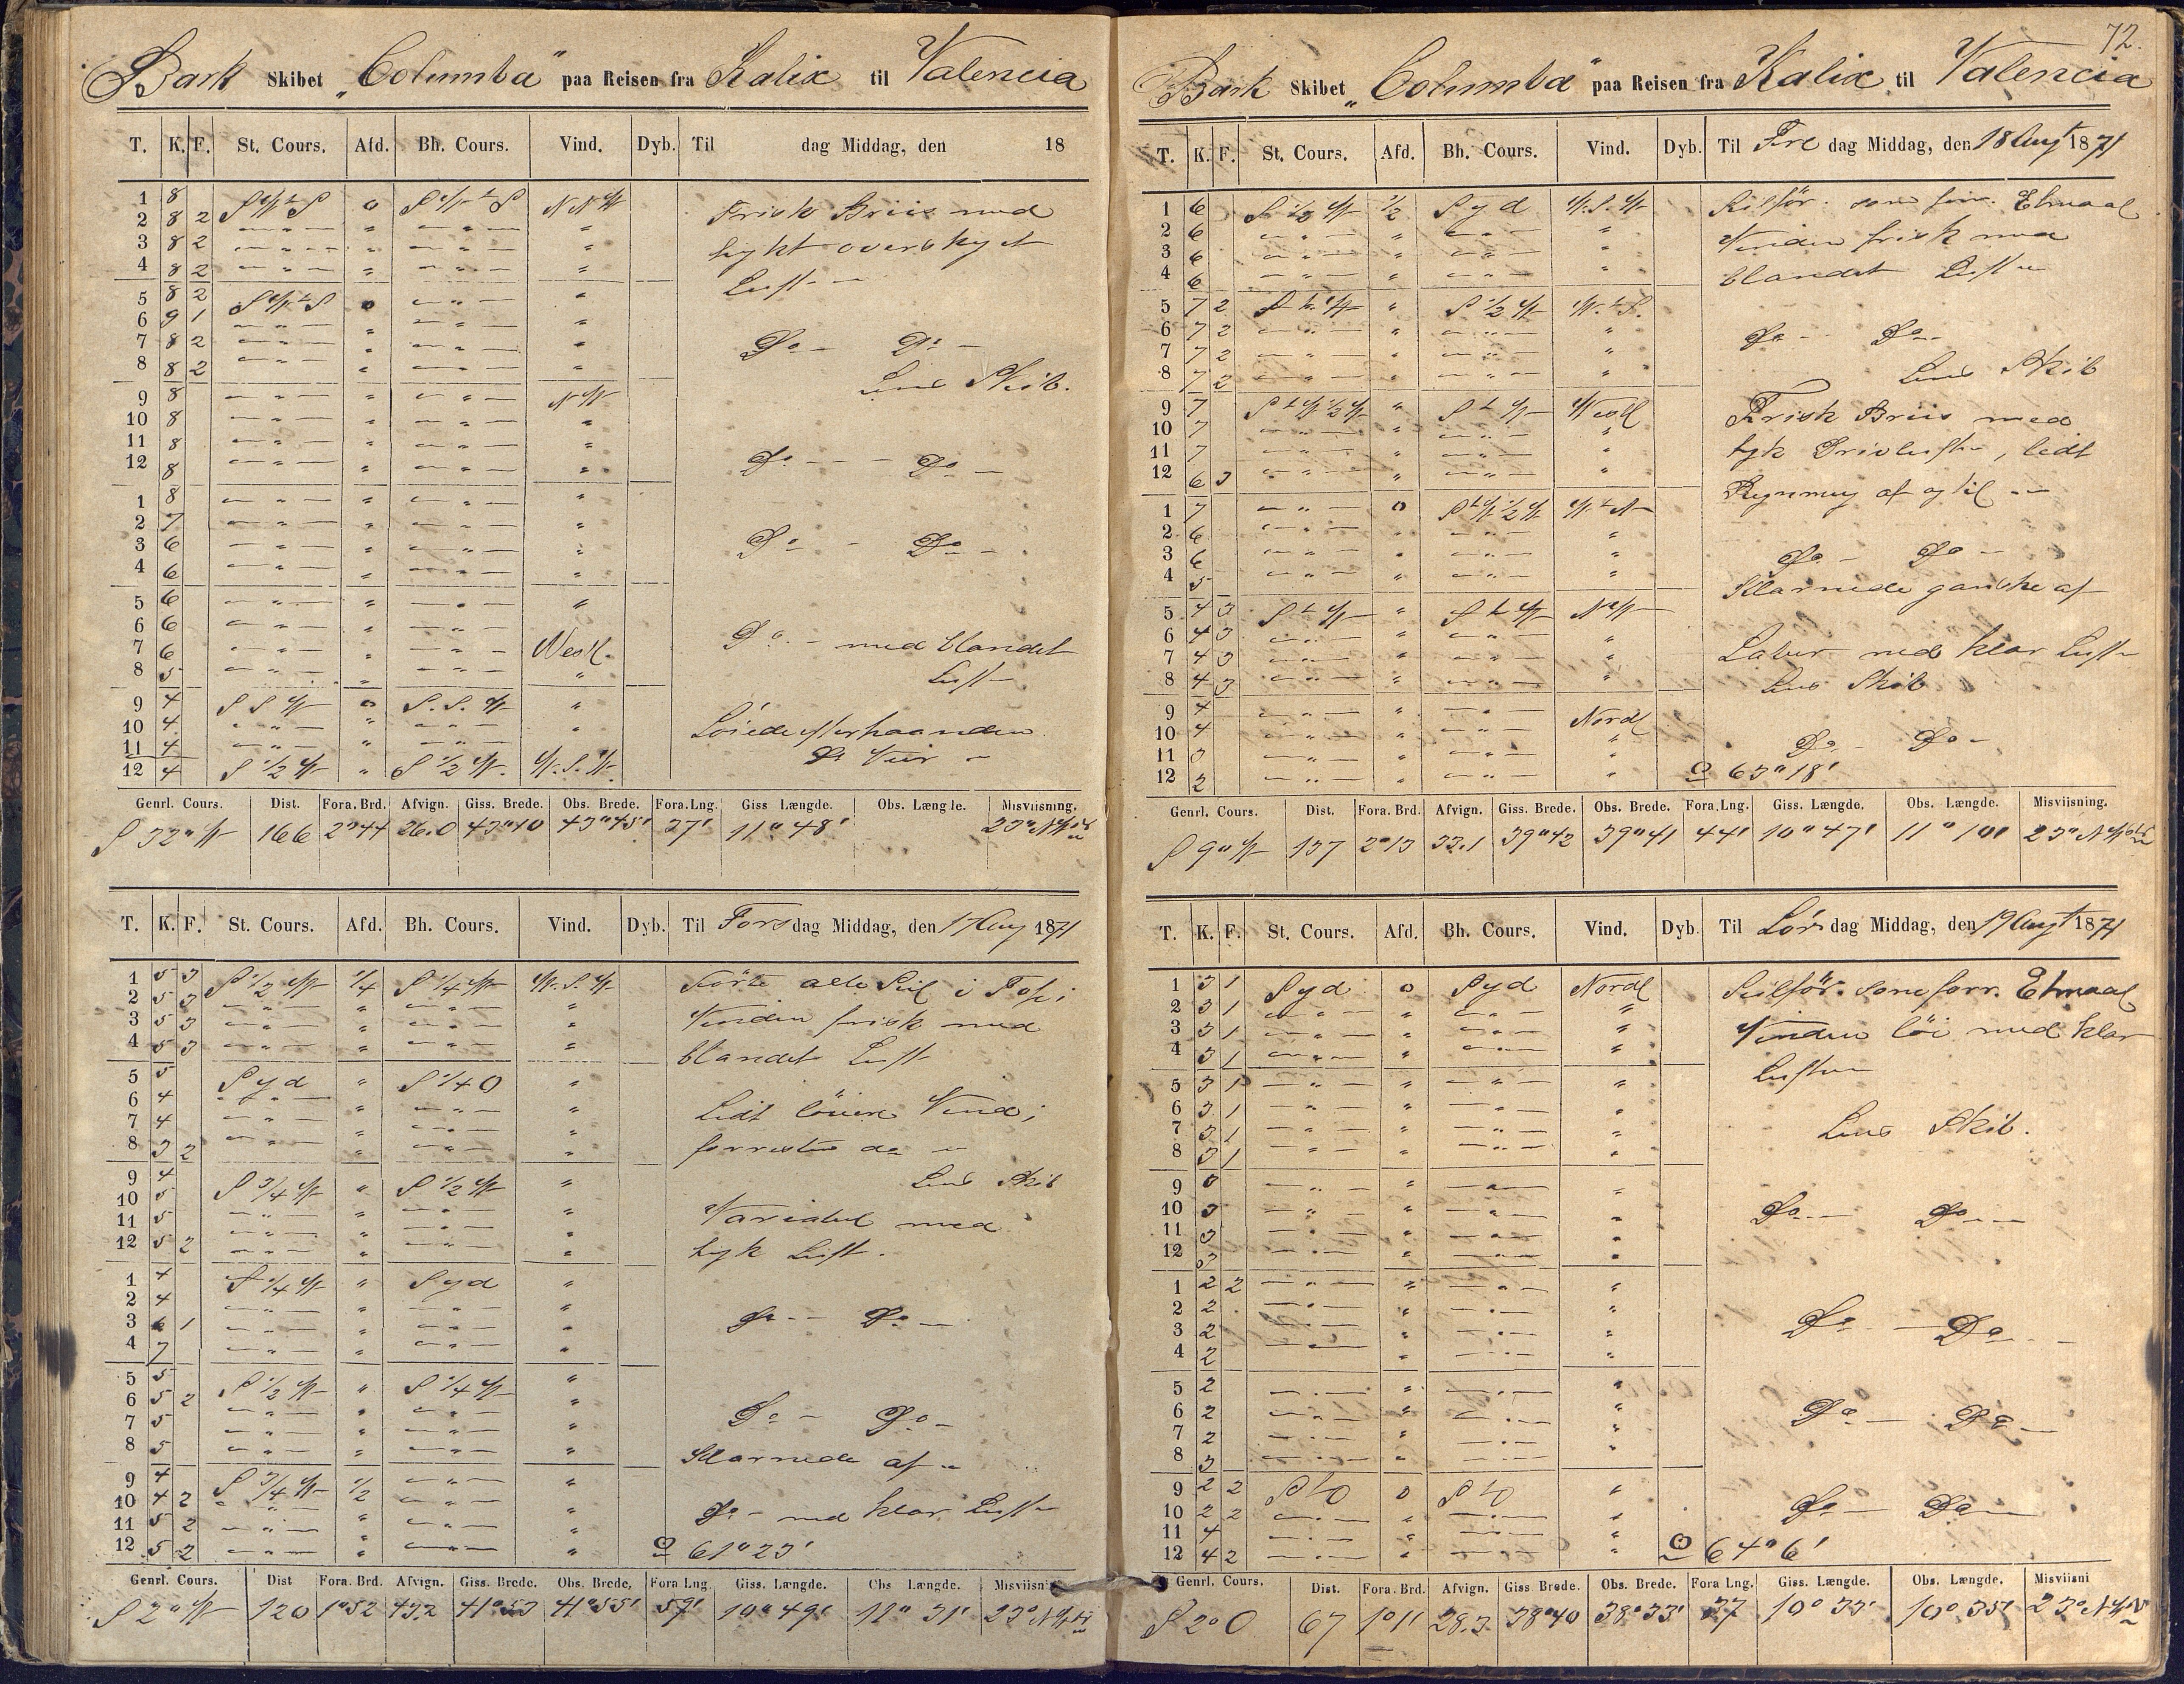 Bark Skibet „Columba" paa Reisen fra Kalix til Valencia
T. K. F. St. Cours. Afd. Bh. Cours. Vind. Dyb. Til dag Middag, den 18
1 8 SWtS 0 SWtS NNW Frisk Briis med
2 8 2 — " — " — " — "
3 8 2 — " — " — " — " tykt overskyet
4 8 2 — " — " — " — " Luft
5 8 2 SWtS 0 — " — "
6 9 1 — " — " — " — "
7 8 2 — " — " — " — " Do — Do —
8 8 2 — " — " — " — "
9 8 — " — " — " — NW Lens Skib.
10 8 — " — " — " — "
11 8 — " — " — " — "
12 8 — " — " — " — " Do — Do —
1 8 — " — " — " — "
2 7 — " — " — " — "
3 6 — " — " — " — " Do — Do —
4 6 — " — " — " — "
5 6 — " — " — " — "
6 6 — " — " — " — "
7 6 — " — " — " — Westl. Do. — med blandet
8 5 — " — " — " — " Luft
9 4 SSW 0 S.S.W "
10 4 — " — " — " — " Löiede efterhaanden
11 4 — " — " — " — "
12 4 S 1/2 W " S 1/2 W. W.S.W. Do Veir
Genrl. Cours. Dist. Fora. Brd. Afvign. Giss. Brede. Obs. Brede. Fora. Lng. Giss Længde. Obs. Længde. Misviisning.
S 32° W 166 2°44 26.0 43°40 43°45' 37' 11° 48' 23° NW
T. K. F. St. Cours. Afd. Bh. Cours. Vind. Dyb. Til Torsdag Middag, den 17 Aug 1871
1 5 3 S 1/2 W 1/4 S 1/4 W W.S.W Förte alle Seil i Top;
2 5 3 — " — " — " — "
3 5 3 — " — " — " — " Vinden frisk med
4 5 3 — " — " — " — " blandet Luft
5 5 Syd " S 1/4 O "
6 4 — " — " — " — " Lidt löiere Vind i
7 4 — " — " — " — "
8 3 2 — " — " — " — " forresten do
9 4 S 3/4 W " S 1/2 W " Lens Skib
10 5 — " — " — " — "
11 5 — " — " — " — " Variabel med
12 5 2 — " — " — " — " tyk Luft.
1 4 S 1/4 W " Syd "
2 4 — " — " — " — "
3 6 1 — " — " — " — " Do — Do —
4 7 — " — " — " — "
5 5 S 1/2 W " S 1/4 W "
6 5 2 — " — " — " — "
7 5 — " — " — " — " Do — Do —
8 5 — " — " — " — " Klarnede af
9 4 S 3/4 W 1/2 — " — "
10 4 2 — " — " — " — "
11 5 2 — " — " — " — " Do — med klar Luft
12 5 2 — " — " — " — " 61° 23'
Genrl. Cours. Dist Fora. Brd. Afvign. Giss. Brede. Obs. Brede. Fora Lng. Giss. Længde. Obs Længde. Misviisni
S 2° W 120 1°52 43.2 41°53 41°55' 59' 10° 49' 11° 31' 23° NW
72.
Bark Skibet „Columba" paa Reisen fra Kalix til Valencia
T. K. F. St. Cours. Afd. Bh. Cours. Vind. Dyb. Til Fredag Middag, den 18 Augt 1871
1 6 S 1/2 W 1/2 Syd W.S.W Seilför. som forr. Etmaal
2 6 — " — " — " — "
3 6 — " — " — " — " Vinden frisk med
4 6 — " — " — " — " blandet Luft
5 7 2 StW " S 1/2 W W.tS.
6 7 2 — " — " — " — " Do — Do —
7 7 2 — " — " — " — "
8 7 2 — " — " — " — " Lens Skib
9 7 StW 1/2 W " StW Westl Frisk Briis med
10 7 — " — " — " — "
11 7 — " — " — " — " tyk Drivluft, lidt
12 6 3 — " — " — " — " Regnmug af og til
1 7 — " — 0 StW 1/2 W WtN
2 6 — " — " — " — "
3 6 — " — " — " — " Do — Do —
4 5 — " — " — " — " Klarnede ganske af
5 4 3 StW " StW NW
6 4 3 — " — " — " — "
7 4 3 — " — " — " — " Laber med klar Luft
8 4 3 — " — " — " — " Lens Skib
9 4 — " — " — " — Nordl
10 4 — " — " — " — "
11 3 — " — " — " — " Do — Do —
12 2 — " — " — " — " 63° 18'
Genrl. Cours. Dist. Fora. Brd. Afvign. Giss. Brede. Obs. Brede. Fora. Lng. Giss. Længde. Obs. Længde. Misviisning.
S 9° W 137 2°13 33.1 39°42 39°41 44' 10° 47' 11° 10' 23° NW
T. K. F. St. Cours. Afd. Bh. Cours. Vind. Dyb. Til Lördag Middag, den 19 Augt 1871
1 3 1 Syd 0 Syd Nordl Seilför. som forr. Etmaal
2 3 1 — " — " — " — "
3 3 1 — " — " — " — " Vinden löi med klar
4 3 1 — " — " — " — "
5 3 1 — " — " — " — " Luft
6 3 1 — " — " — " — "
7 3 1 — " — " — " — " Lens Skib.
8 3 1 — " — " — " — "
9 3 — " — " — " — "
10 3 — " — " — " — " Do — Do —
11 3 — " — " — " — "
12 3 — " — " — " — "
1 2 2 — " — " — " — "
2 2 — " — " — " — "
3 2 — " — " — " — " Do — Do —
4 2 — " — " — " — "
5 2 — " — " — " — "
6 2 — " — " — " — " Do — Do —
7 2 — " — " — " — "
8 3 — " — " — " — "
9 2 2 StO 0 StO "
10 2 2 — " — " — " — " Do — Do —
11 4 — " — " — " — "
12 4 2 — " — " — " — " 64° 6'
Genrl. Cours. Dist. Fora. Brd. Afvign. Giss Brede. Obs. Brede. Fora Lng. Giss. Længde. Obs. Længde. Misviisni
S 2° O 67 1°11' 28.3 38°40 38°33' 37 10° 33' 10° 35' 23° NW